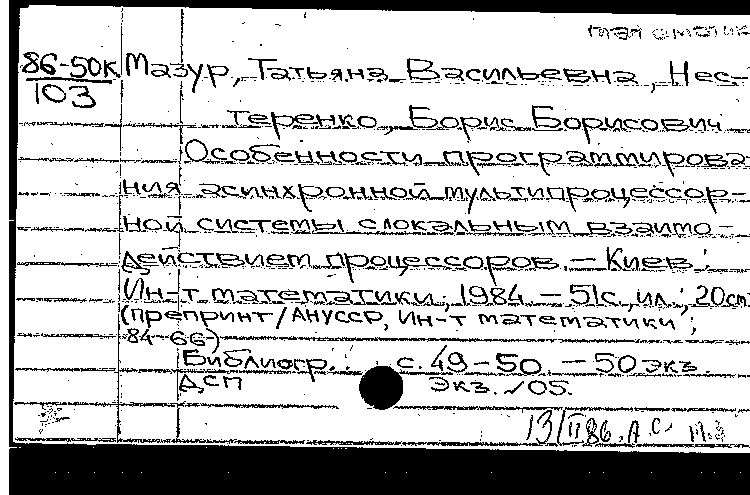 86-50к Мазур, Татьяна Васильевна, Нес-
103
теренко, Борис Борисович
Особенности программирова
ния асинхронной мультипроцессор-
ной системы с локальным взаимо-
действием процессоров. - Киев:
Ин-т математики, 1984 - 51с., ил.; 20см
(препринт/АНУССР, Ин-т математики;
84-66)
Библиогр.: с. 49-50. - 50 экз.
ДСП Экз. √05.
13/II 86. А.С.